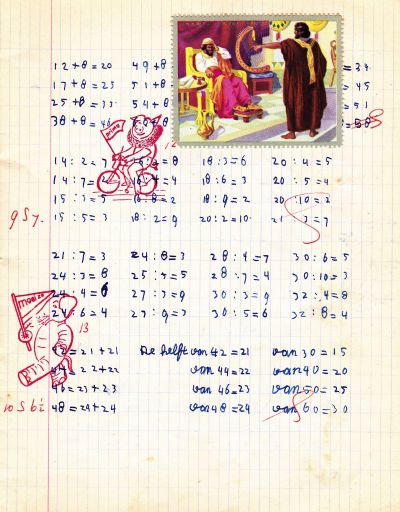 12+8=20 49+8 = 39
17+8=25 51+8 45
25+8=33 54+8 51
38+8=46 =58
14:2=7 16:2=8 18:3=6 20:4=5
14:7=2 16:4=4 18:6=3 20:5=4
15:3=5 16:8=2 18:9=2 20:10=2
15:5=3 18:2=9 20:2=10 21:3=7
21:7=3 24:8=3 28:4=7 30:6=5
24:3=8 25:5=5 28:7=4 30:10=3
24:4=6 27:3=9 30:3=9 32:4=8
24:6=4 27:9=3 30:5=6 32:8=4
13
42=21+21 De helft van 42=21 van 30=15
44=22+22 van 44=22 van 40=20
46=23+23 van 46=23 van 50=25
48=24+24 van 48=24 van 60=30